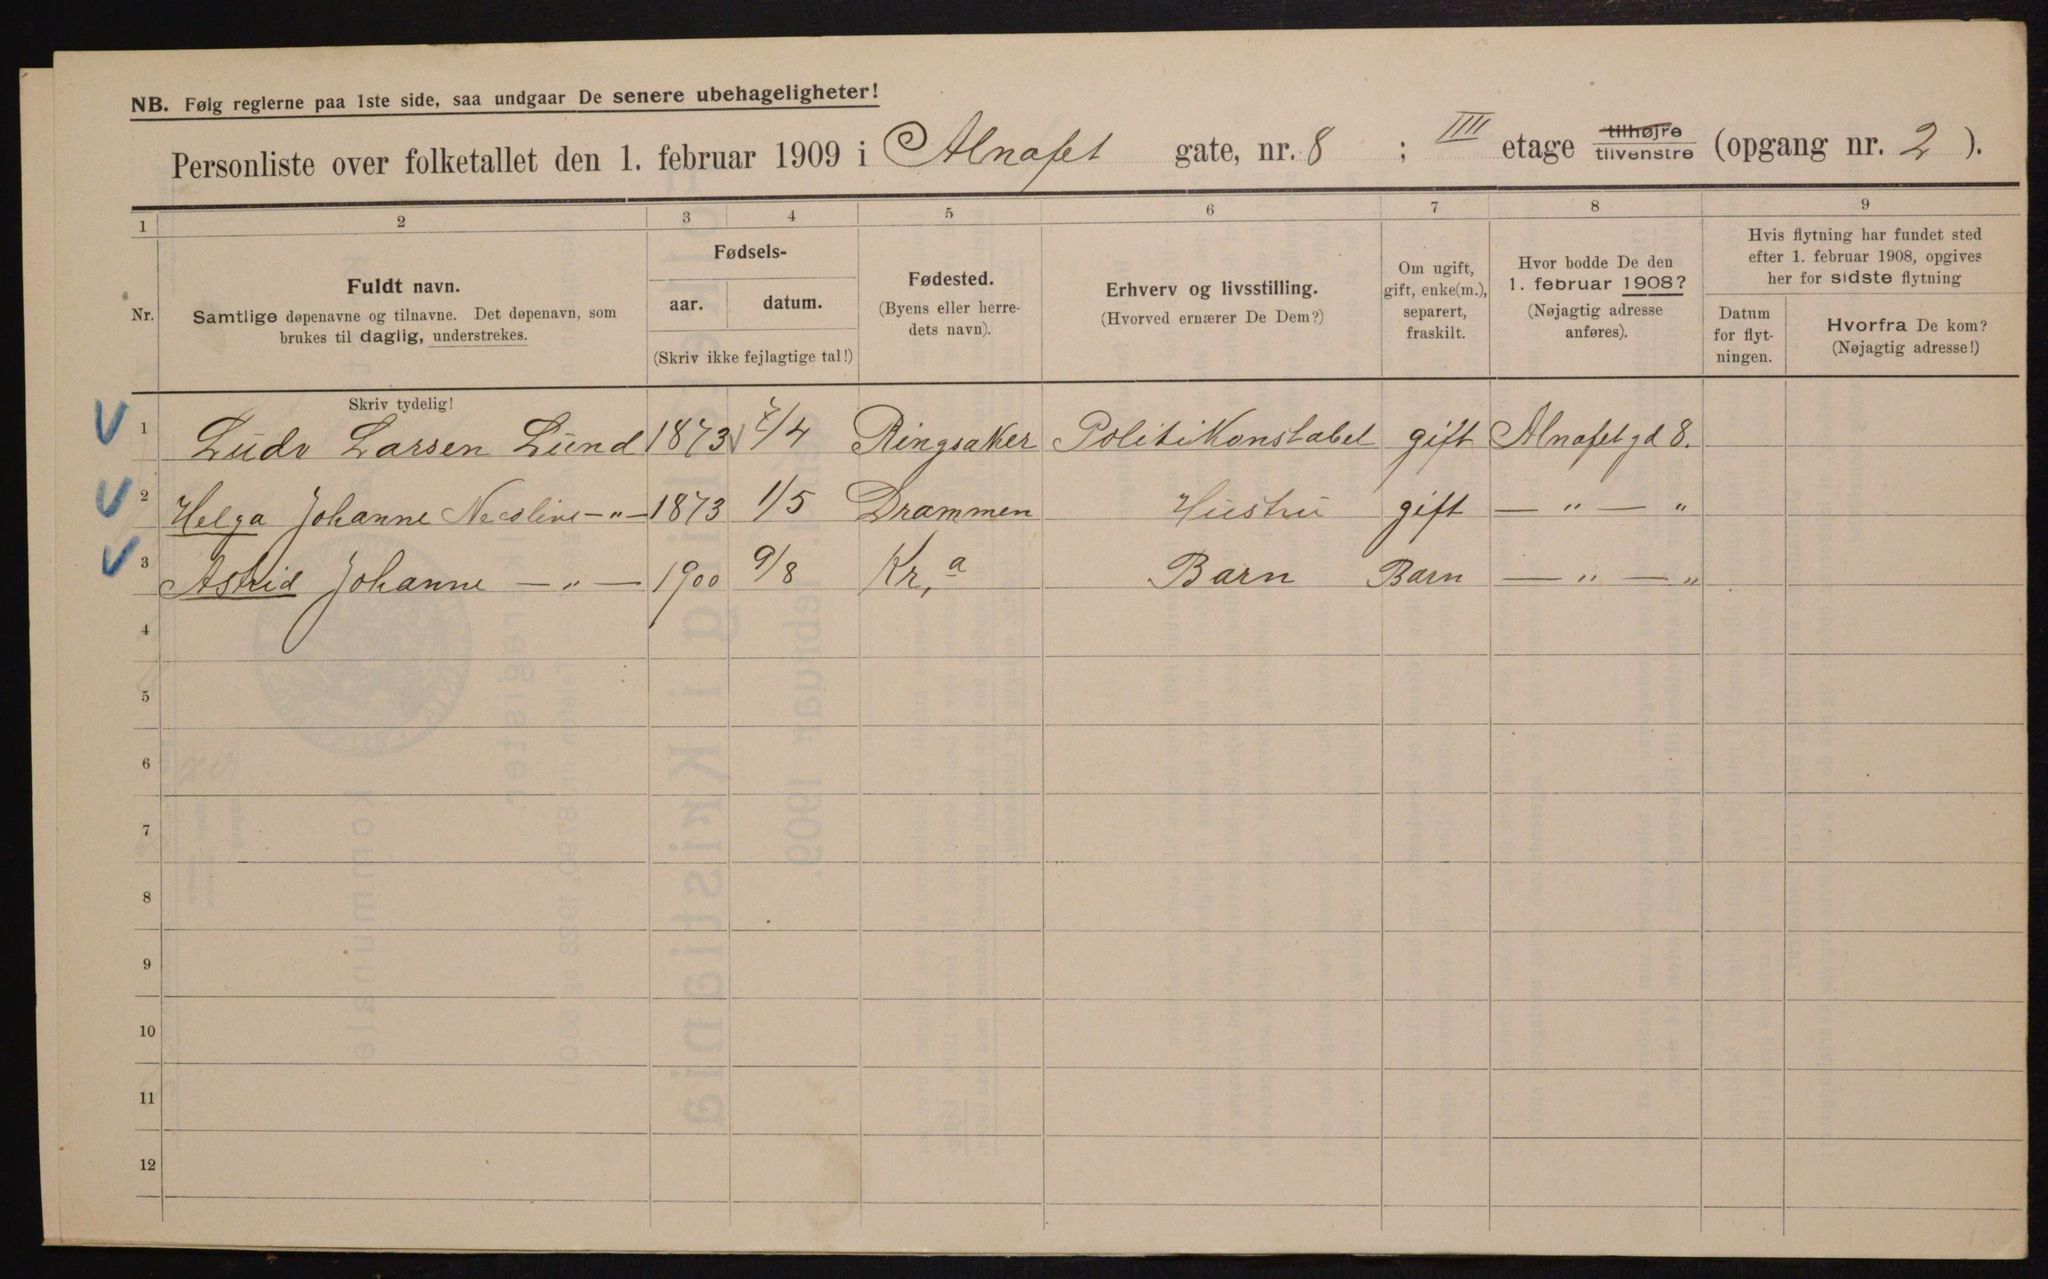 NB. Følg reglerne paa 1ste side, saa undgaar De senere ubehageligheter!
Personliste over folketallet den 1. februar 1909 i Alnafet gate, nr. 8 ; IIII etage tilhøjre tilvenstre (opgang nr. 2 ).
1 2 3 4 5 6 7 8 9
Nr.
Fuldt navn.
Samtlige døpenavne og tilnavne. Det døpenavn, som
brukes til daglig, understrekes.
Skriv tydelig!
Fødsels-
aar. datum.
(Skriv ikke fejlagtige tal!)
Fødested.
(Byens eller herre-
dets navn).
Erhverv og livsstilling.
(Hvorved ernærer De Dem?)
Om ugift,
gift, enke(m.),
separert,
fraskilt.
Hvor bodde De den
1. februar 1908?
(Nøjagtig adresse
anføres).
Hvis flytning har fundet sted
efter 1. februar 1908, opgives
her for sidste flytning
Datum
for flyt-
ningen.
Hvorfra De kom?
(Nøjagtig adresse!)
1 Ludv Larsen Lund 1873 7/4 Ringsaker Politikonstabel gift Alnafetgd 8.
2 Helga Johanne Necoline —"— 1873 1/5 Drammen Hustru gift — " — "
3 Astrid Johanne — " — 1900 9/8 Kr,a Barn Barn — " — "
4
5
6
7
8
9
10
11
12